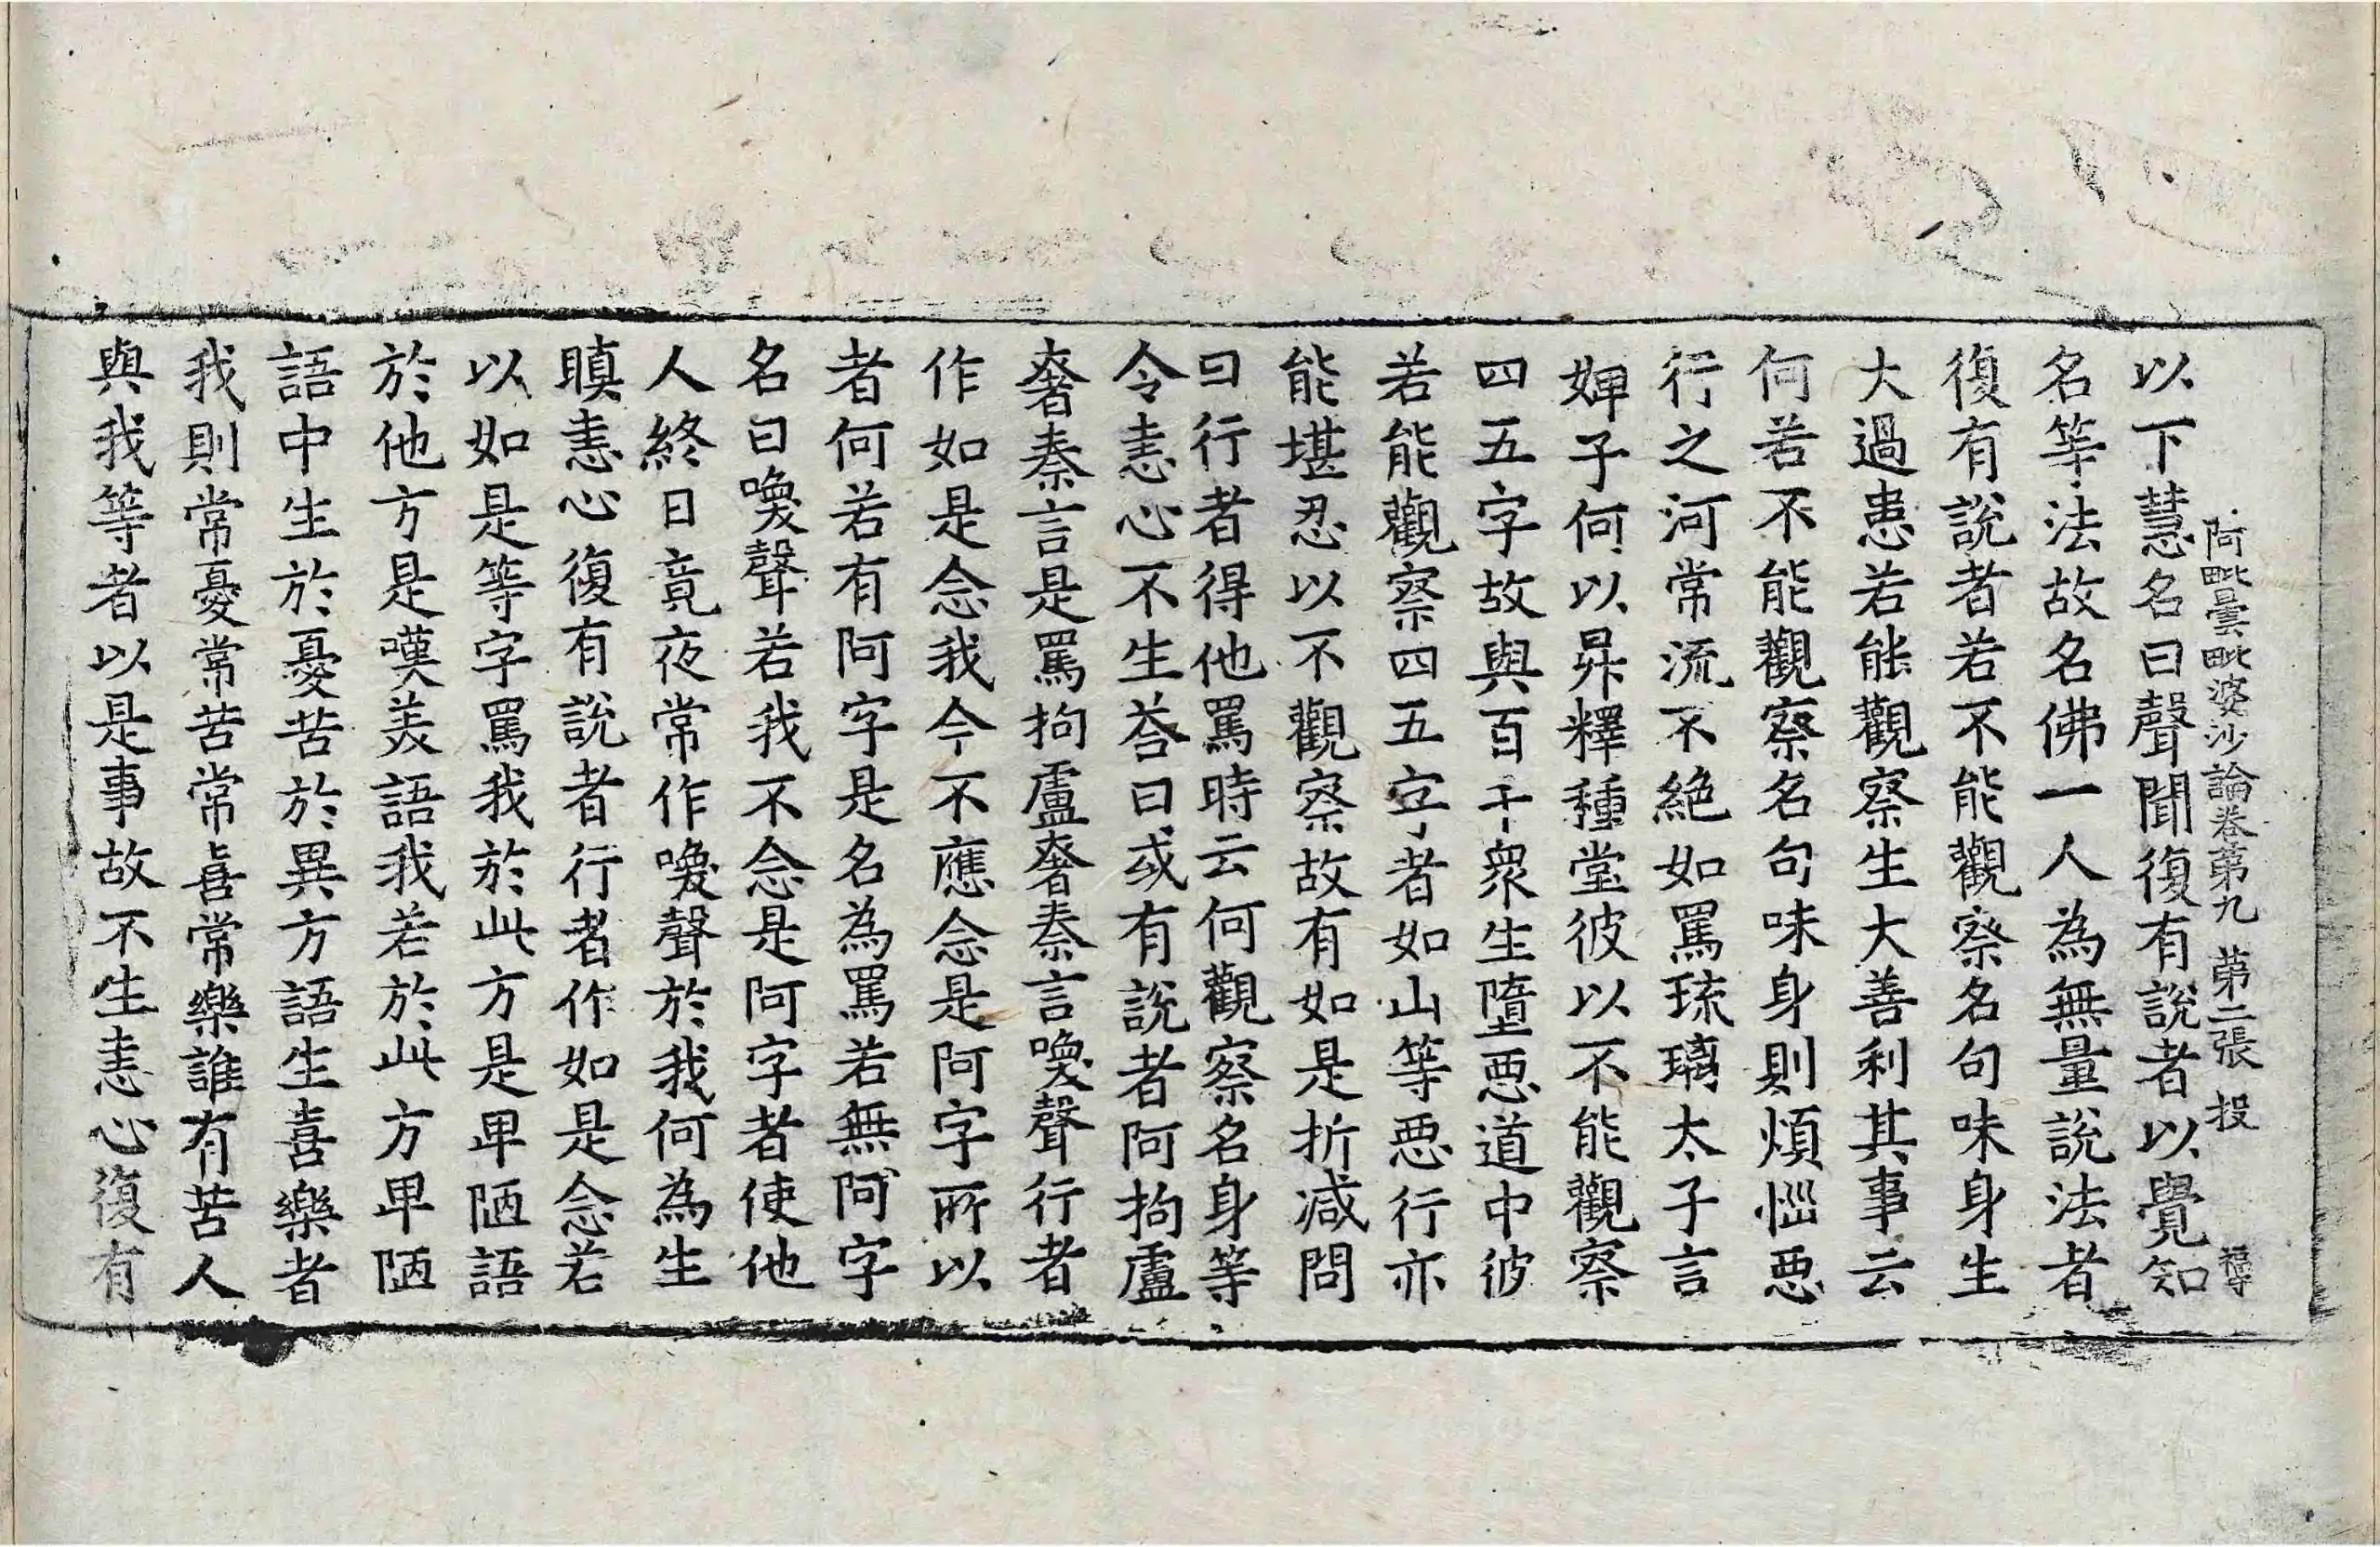 阿毗曇毗婆沙論卷第九　第二張　投
以下慧名曰聲聞復有說者以覺知
名等法故名佛一人為無量說法者
復有說者若不能觀察名句味身生
大過患若能觀察生大善利其事云
何若不能觀察名句味身則煩惱惡
行之河常流不絕如罵琉璃太子言
婢子何以昇釋種堂彼以不能觀察
四五字故與百千眾生墮惡道中彼
若能觀察四五字者如山等惡行亦
能堪忍以不觀察故有如是折減問
曰行者得他罵時云何觀察名身等
令恚心不生荅曰或有說者阿拘盧
奢秦言是罵拘盧奢秦言喚聲行者
作如是念我今不應念是阿字所以
者何若有阿字是名為罵若無阿字
名曰喚聲若我不念是阿字者使他
人終日竟夜常作喚聲於我何為生
瞋恚心復有說者行者作如是念若
以如是等字罵我於此方是卑陋語
於他方是嘆美語我若於此方卑陋
語中生於憂苦於異方語生喜樂者
我則常憂常苦常喜常樂誰有苦人
與我等者以是事故不生恚心復有